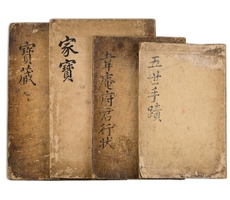 寶藏
家寶
府君行状
五世手蹟